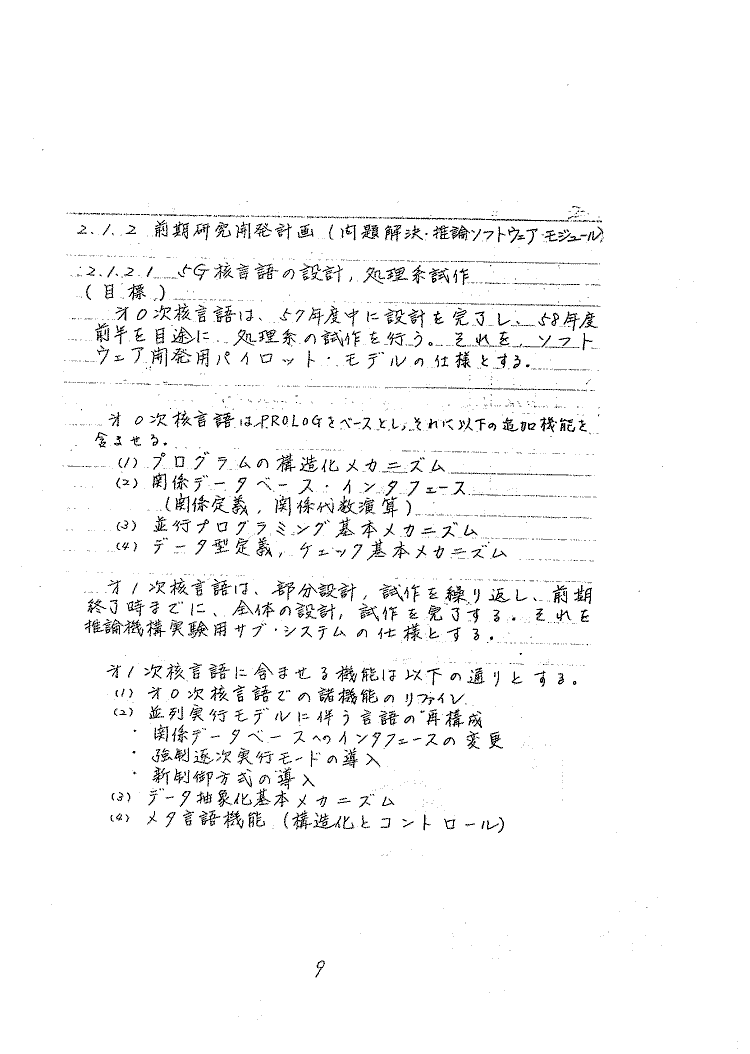 2.1.2 前期研究開発計画 (問題解決・推論ソフトウェア・モジュール)
2.1.2.1 5G核言語の設計, 処理系試作
(目標)
才0次核言語は、57年度中に設計を完了し、58年度
前半を目途に、処理系の試作を行う。それを、ソフト
ウェア開発用パイロット・モデルの仕様とする。
才0次核言語はPROLOGをベースとし、それに以下の追加機能を
含ませる。
(1) プログラムの構造化メカニズム
(2) 関係データベース・インタフェース
(関係定義, 関係代数演算)
(3) 並行プログラミング基本メカニズム
(4) データ型定義, チェック基本メカニズム
才1次核言語は、部分設計, 試作を繰り返し、前期
終了時までに、全体の設計, 試作を完了する。それを
推論機構実験用サブ・システムの仕様とする。
才1次核言語に含ませる機能は以下の通りとする。
(1) 才0次核言語での諸機能のリファイン
(2) 並列実行モデルに伴う言語の再構成
・ 関係データベースへのインタフェースの変更
・ 強制逐次実行モードの導入
・ 新制御方式の導入
(3) データ抽象化基本メカニズム
(4) メタ言語機能 (構造化とコントロール)
9